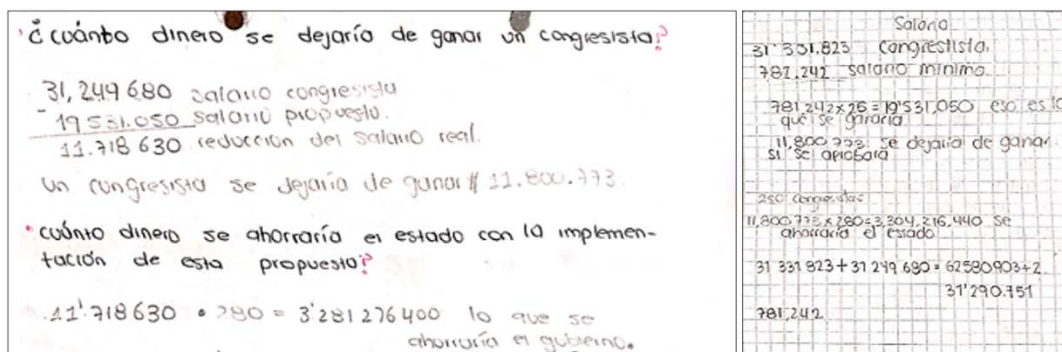 ¿cuánto dinero se dejaría de ganar un congresista?
31,249 680 salario congresista
- 19 531.050 salario propuesto.
11.718 630 reducción del salario real.
un congresista se dejaría de ganar $ 11.800.773.
• cuánto dinero se ahorraría el estado con la implemen-
tación de esta propuesta?
11'718630 • 280 = 3'281276400 lo que se
ahorraría el gubierno.
Salario
31'331.823 congrestista.
781.242 salario minimo.
781 242x25 = 19'531,050 eso es lo
que se ganaria
11,800,773 se dejaria de ganar.
si se aprobara
280 congresistas
11,800 773 x 280=3,304,216,440 se
ahorraria el estado
31 331 823 + 31 249 680 = 62580903÷2
31'290.751
781,242